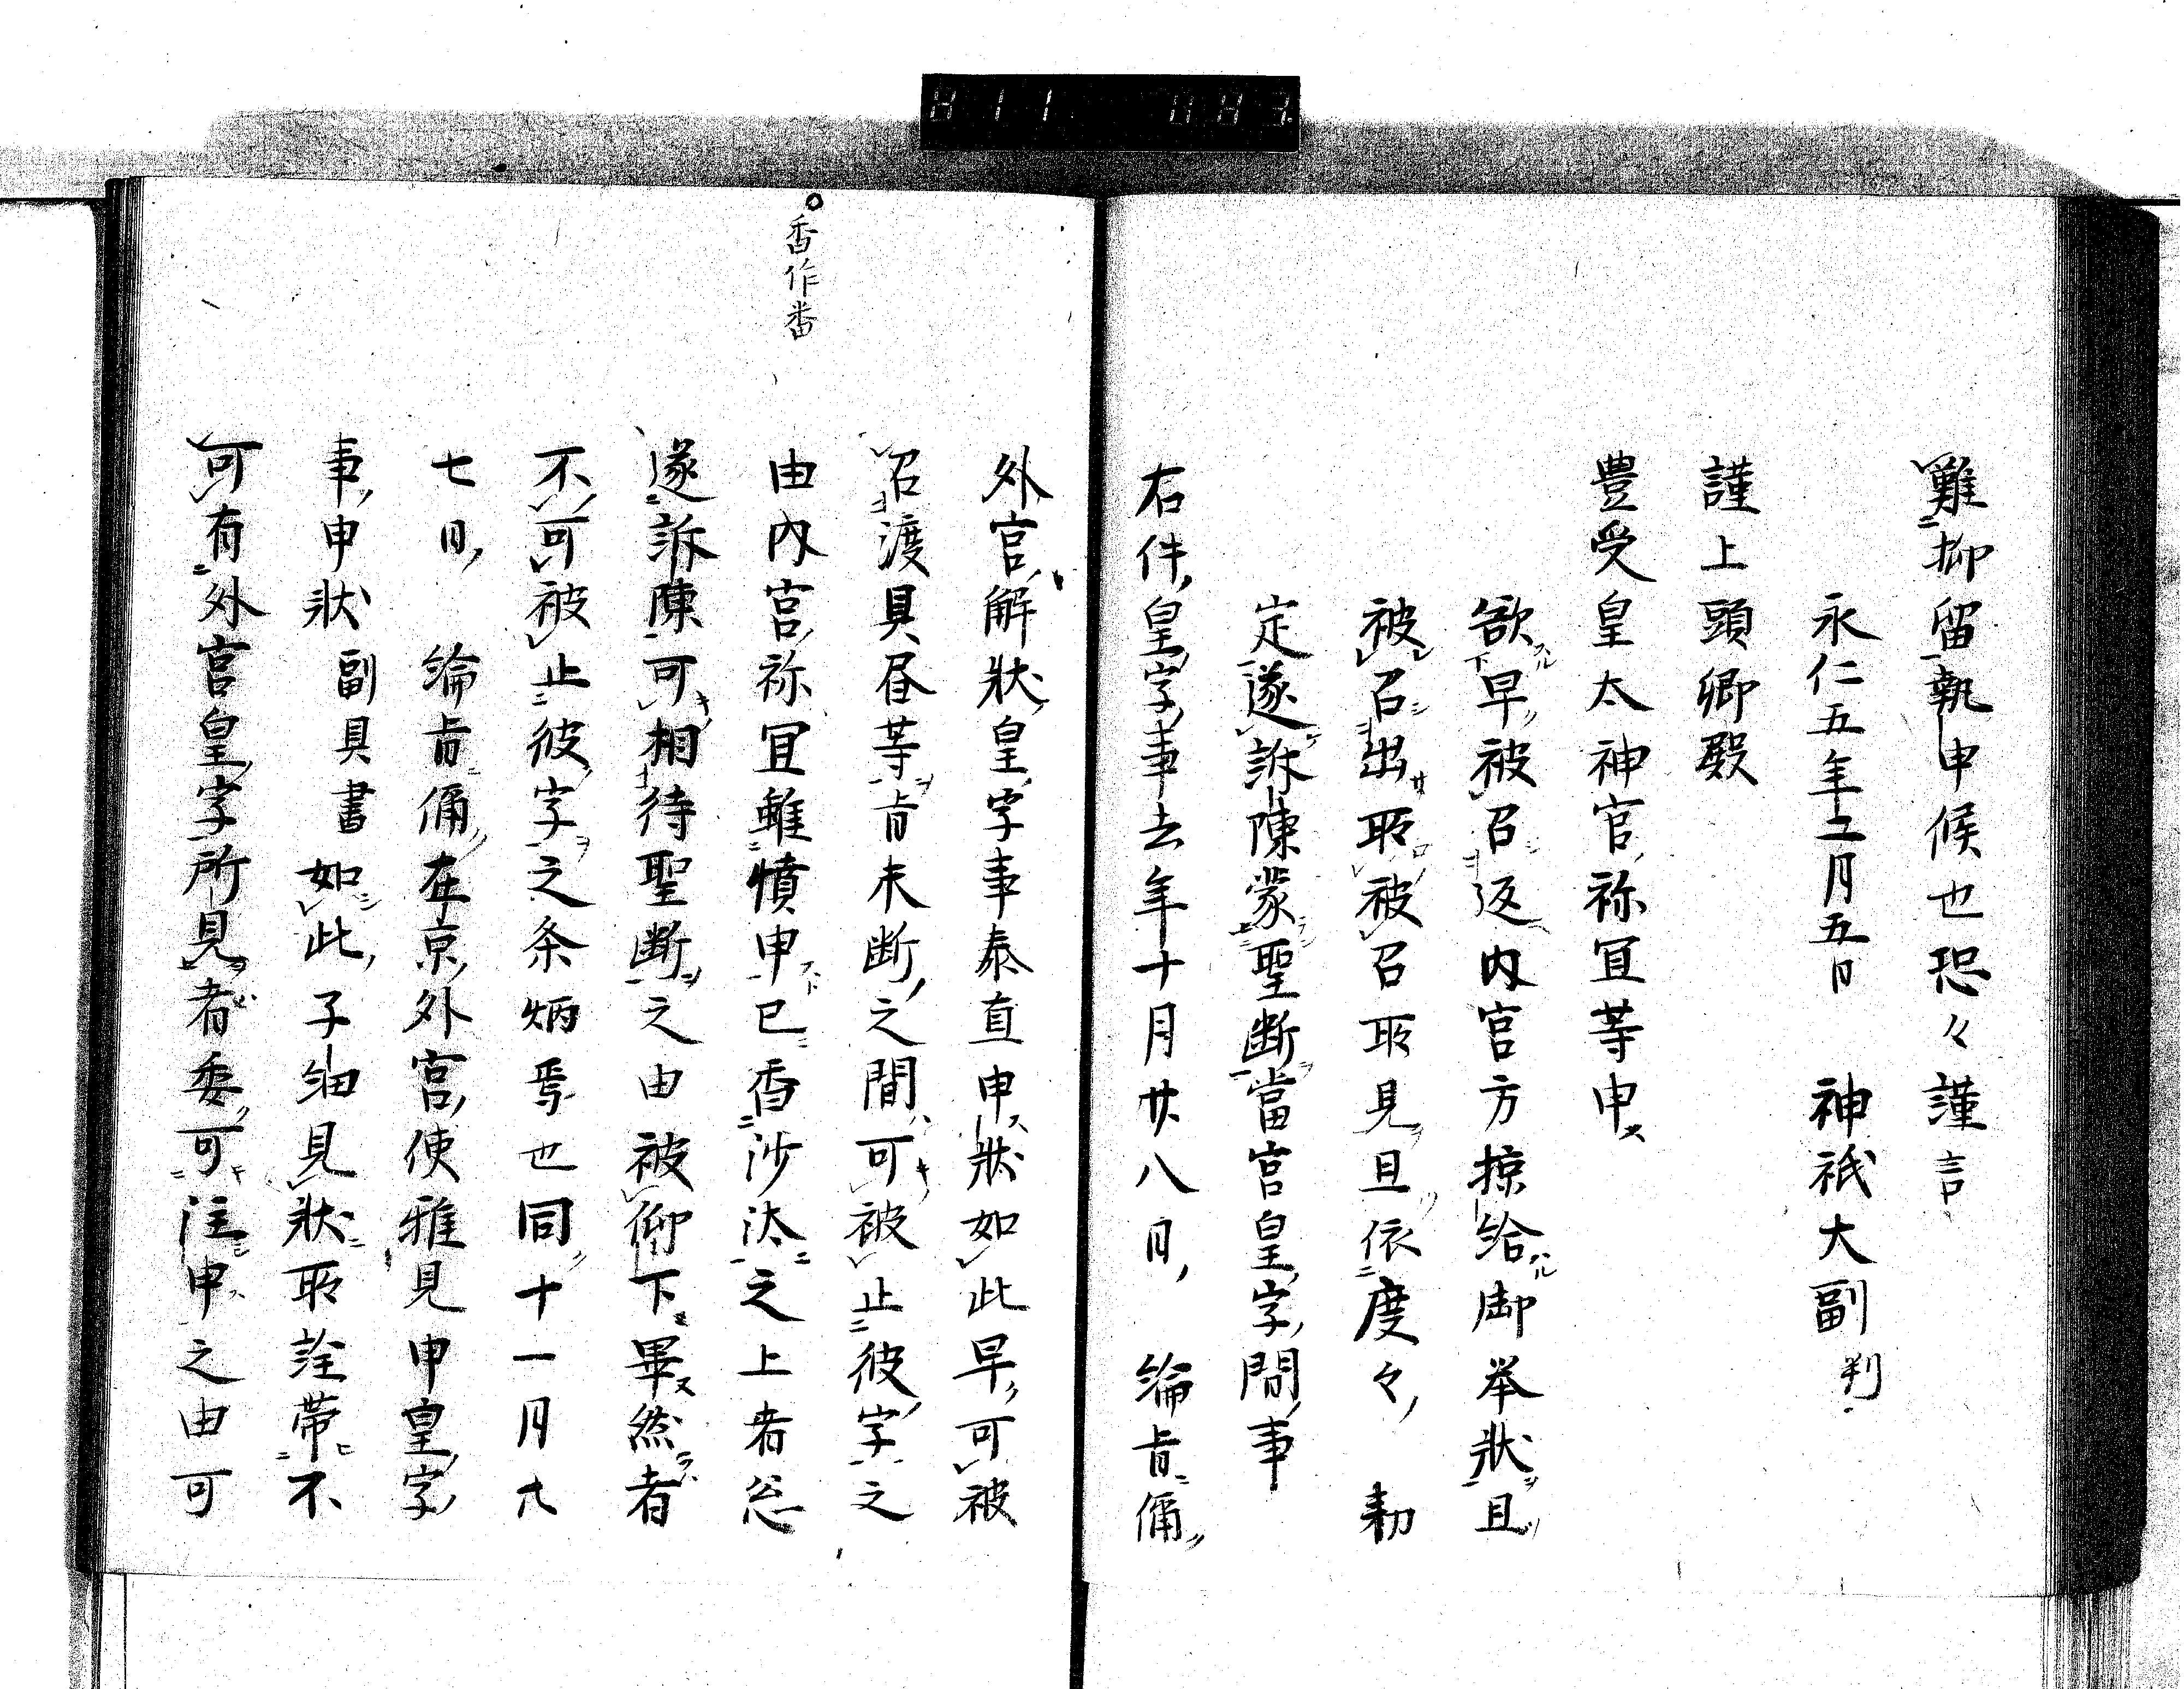 難抑留執申候也恐々謹言
永仁五年二月五日　神祇大副判
謹上頭卿殿
豊受皇太神官祢宜等申
欲早被召返内宮方掠給御挙状且
被召出所被召取見且依度々　勅
定遂訴陳蒙聖断當宮皇字間事
右件皇字事去年十月廿八日　綸旨偁
外宮解状皇字事泰直申状如此早可被
召渡具昼等旨未断之間可被止彼字之
由内宮祢宜雖憤申已香沙汰之上者忩
遂訴陳可相待聖断之由被仰下畢然者
不可被止彼字之条炳焉也同十一月六
七日　綸旨偁在京外宮使雅見申皇字
事申状副具書如此子細見状所詮帯不
可有外宮皇字所見者委可注申之由可
香作番